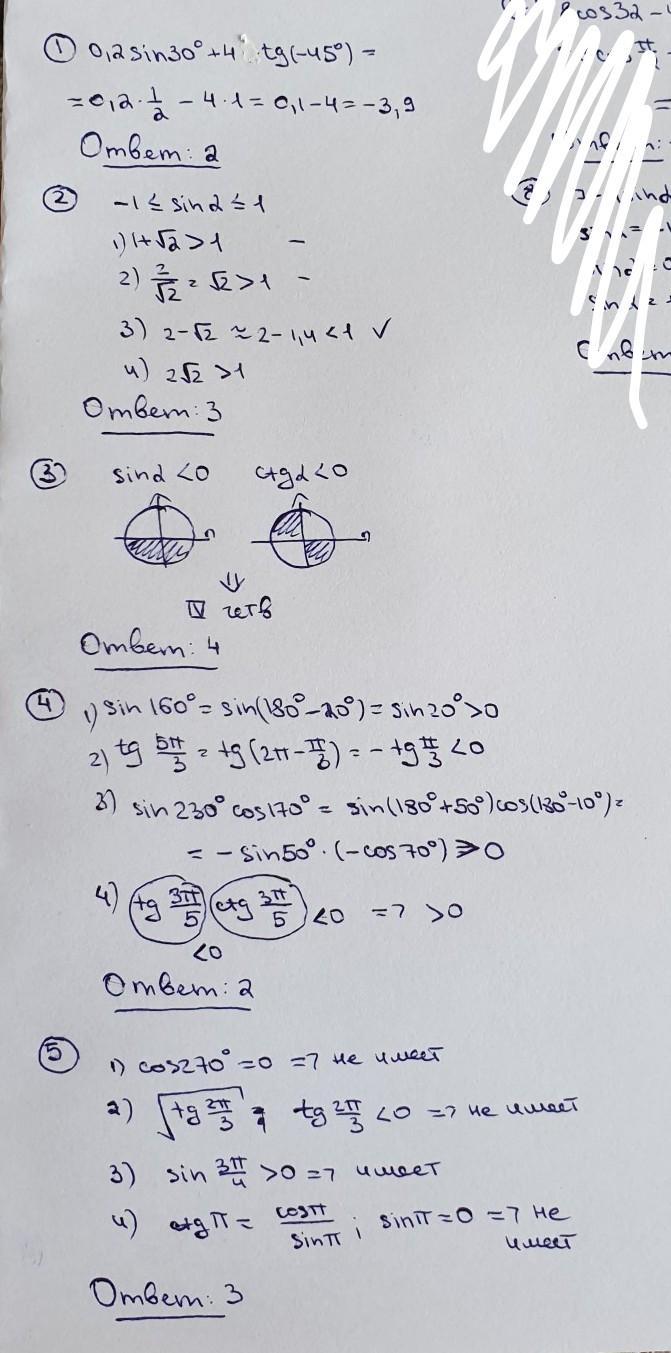 ① 0,2sin30° + 4 tg(-45°) =
= 0,2 · 1/2 - 4 · 1 = 0,1 - 4 = -3,9
Ответ: 2
② -1 ≤ sinα ≤ 1
1) 1+√2 > 1 -
2) 2/√2 = √2 > 1 -
3) 2-√2 ≈ 2-1,4 < 1 ✓
4) 2√2 > 1
Ответ: 3
③ sinα < 0 ctgα < 0
⇓
IV четв
Ответ: 4
④ 1) sin 160° = sin(180°-20°) = sin20° > 0
2) tg 5π/3 = tg(2π - π/3) = - tg π/3 < 0
3) sin230° cos170° = sin(180°+50°)cos(180°-10°) =
= -sin50° · (-cos70°) > 0
4) tg 3π/5 ctg 3π/5 < 0 => > 0
< 0
Ответ: 2
⑤ 1) cos270° = 0 => не имеет
2) √tg 2π/3 ; tg 2π/3 < 0 => не имеет
3) sin 3π/4 > 0 => имеет
4) ctg π = cosπ/sinπ ; sinπ = 0 => не
имеет
Ответ: 3
cos3α -